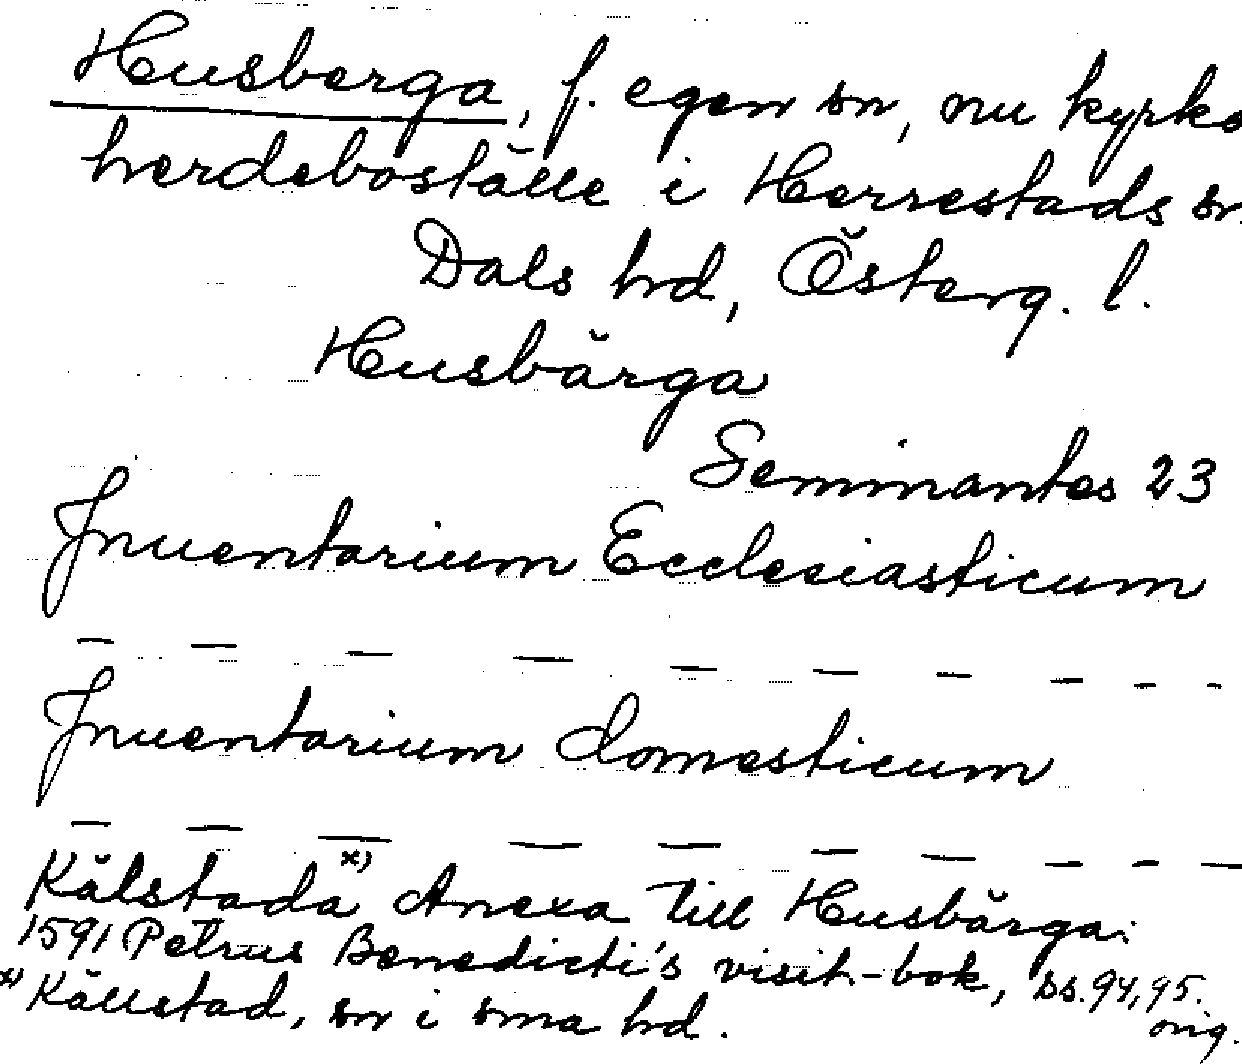 Husberga, f. egen sn, nu kyrko
herdeboställe i Herrestads sn.
Dals hd, Österg. l.
Husbärga
Seminantes 23
Inuentarium Ecclesiasticum
— — — — — — — — - -
Inuentarium domesticum
— — — — — — — — — —
Kälstada x) Anexa till Husbärga:
1591 Petrus Benedicti's visit.-bok, ss. 94, 95.
orig.
x) Källstad, sn i sma hd.